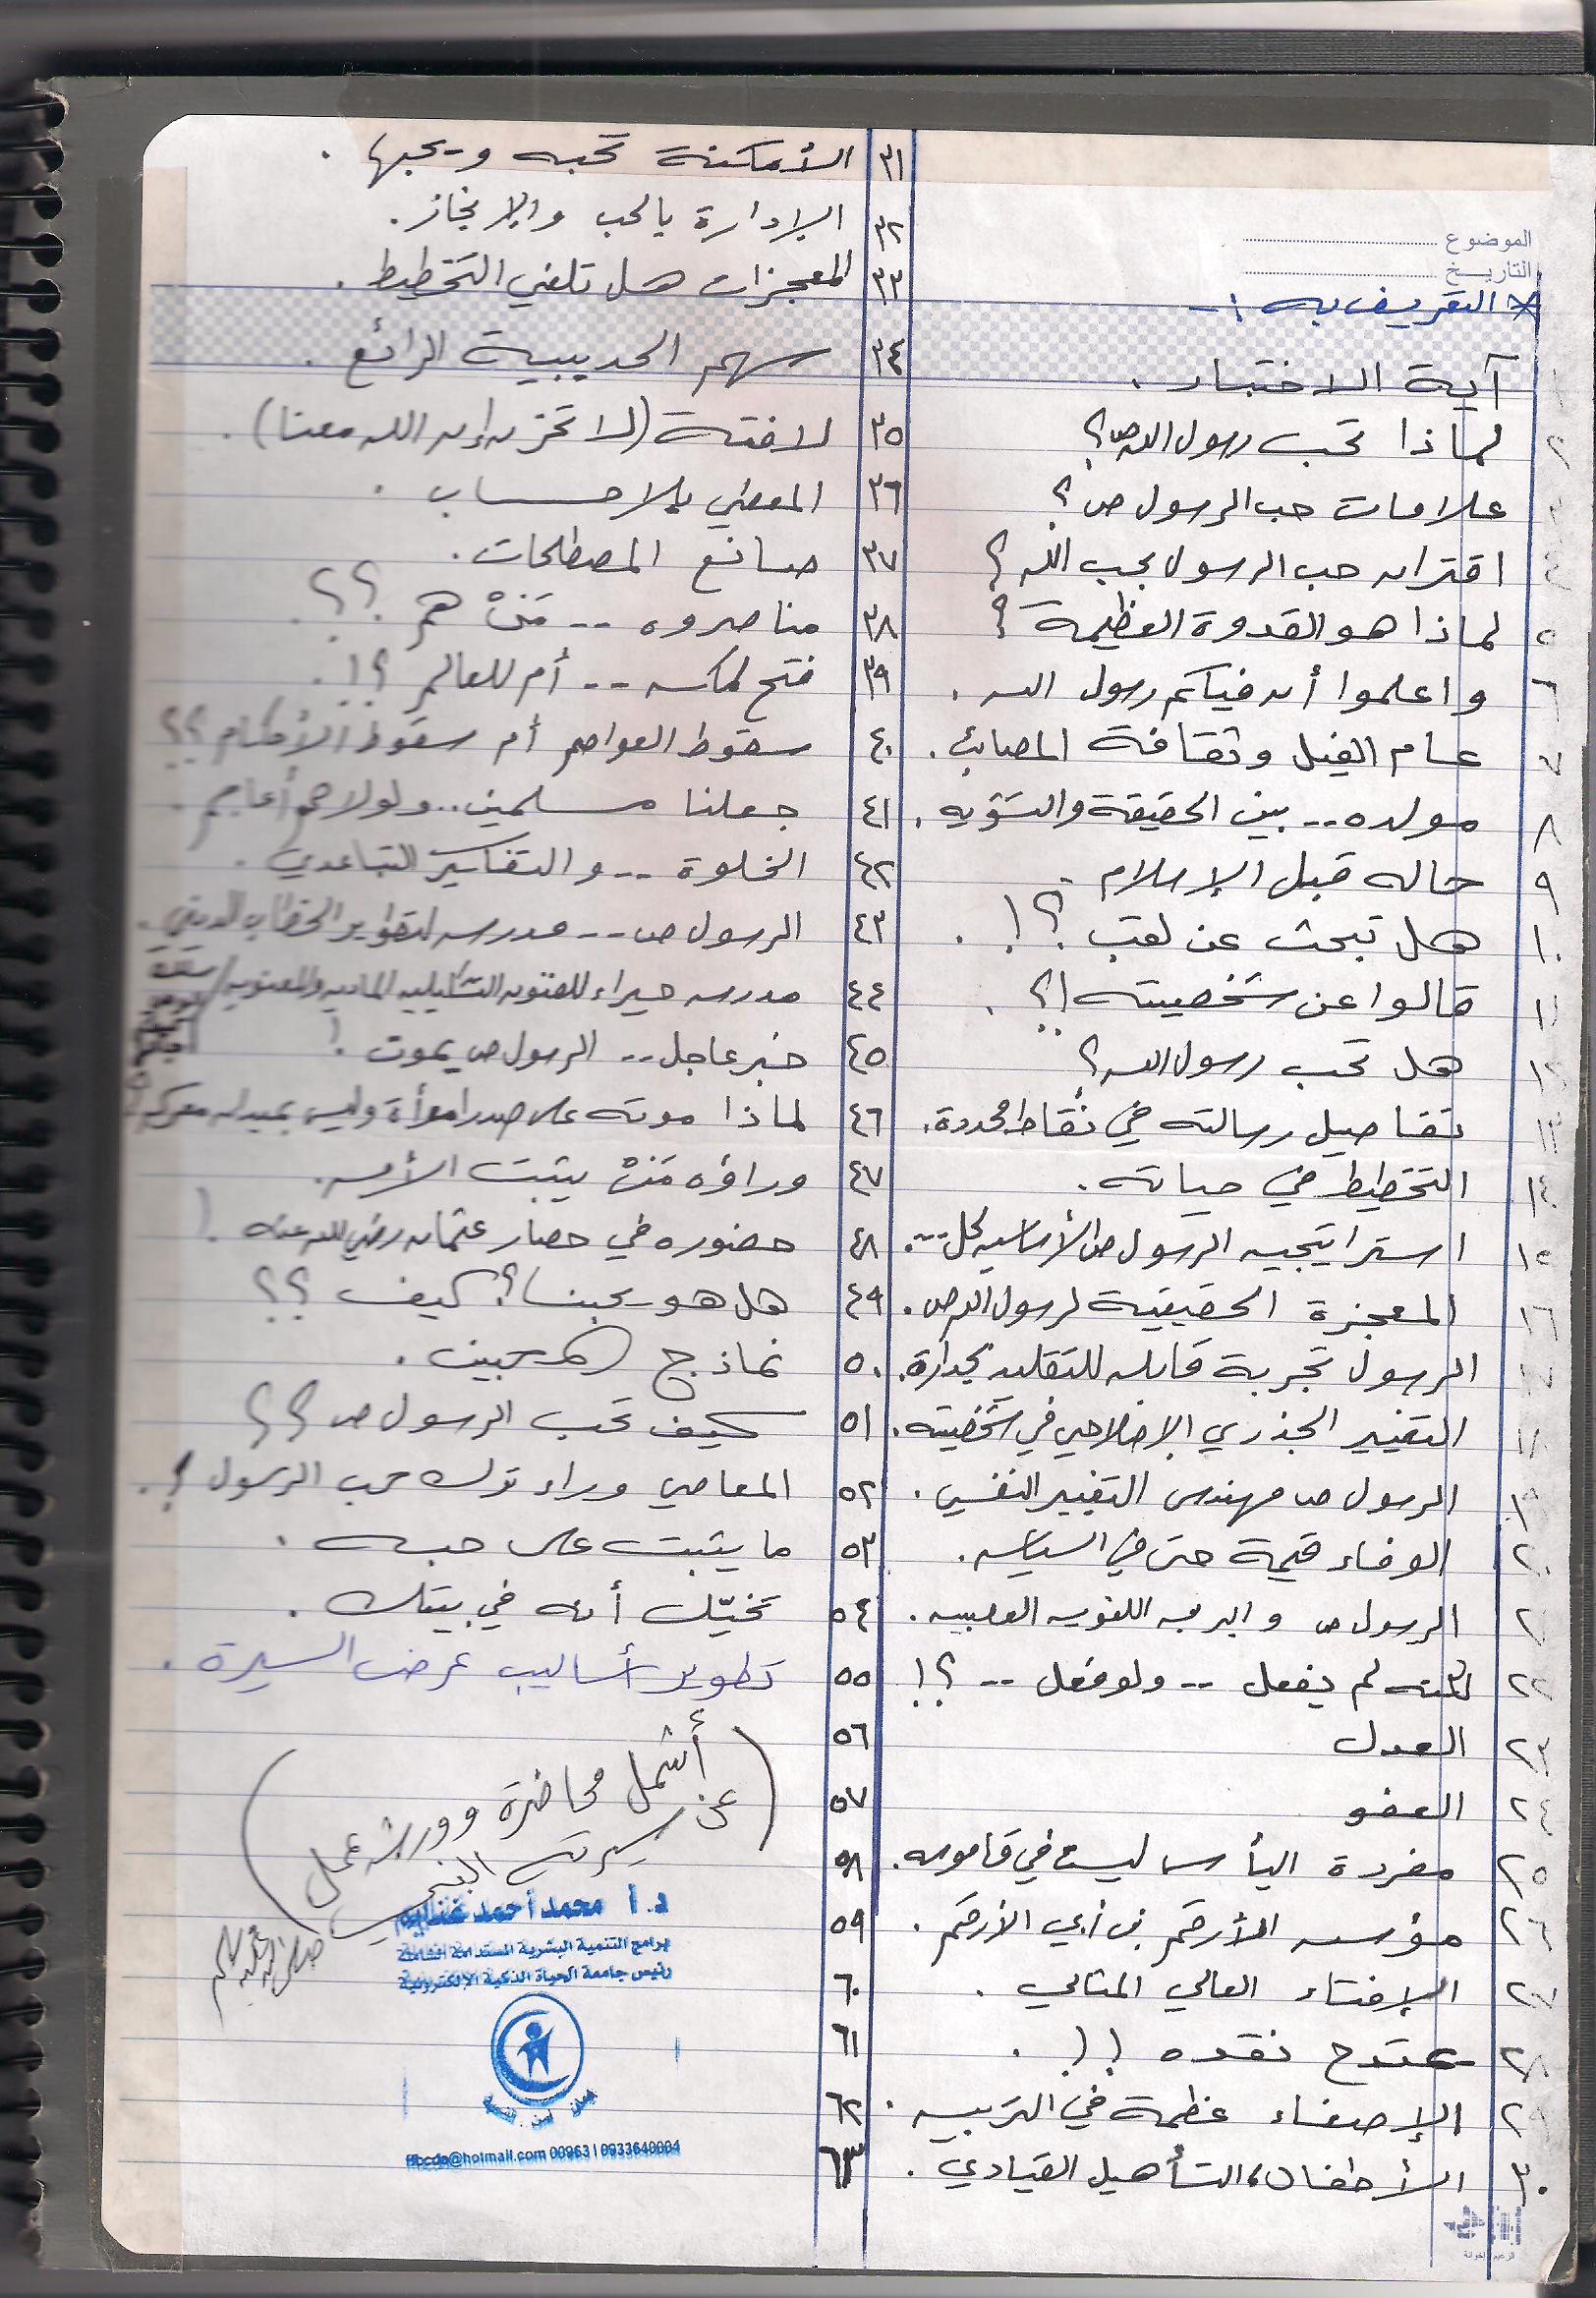 الموضوع
التاريخ
* التعريف به :-
١ آية الاختبار .
٢ لماذا تحب رسول الله ص؟
٣ علامات حب الرسول ص؟
٤ اقتران حب الرسول بحب الله؟
٥ لماذا هو القدوة العظيمة؟
٦ واعلموا أن فيكم رسول الله .
٧ عام الفيل وثقافة المصائب .
٨ مولده -- بين الحقيقة والتشويه .
٩ حاله قبل الإسلام .
١٠ هل تبحث عن لقب ؟! .
١١ قالوا عن شخصيته !؟ .
١٢ هل تحب رسول الله ؟
١٣ تفاصيل رسالته في نقاط محددة .
١٤ التخطيط في حياته .
١٥ استراتيجيه الرسول ص الأساسيه لكل ...
١٦ المعجزة الحقيقية لرسول الله ص .
١٧ الرسول تجربة قابله للتقليد بجدارة .
١٨ التغيير الجذري الإصلاحي في شخصيته .
١٩ الرسول ص مهندس التغيير النفسي .
٢٠ الوفاء قيمة حتى في السياسه .
٢١ الرسول ص والبرمجه اللغويه العصبيه .
٢٢ لكنه لم يفعل -- ولو فعل -- ؟!
٢٣ العدل
٢٤ العفو
٢٥ مفردة اليأس ليست في قاموسه .
٢٦ مؤسسه الأرقم بن أبي الأرقم .
٢٧ الإفتاء العالي المثالي .
٢٨ يمتدح نقده !! .
٢٩ الإصغاء عظمة في التربيه .
٣٠ الأطفال، التأهيل القيادي .
٣١ الأمكنة تحبه ويحبها .
٣٢ الإدارة بالحب والإنجاز .
٣٣ المعجزات هل تلغي التخطيط .
٣٤ سهم الحديبية الرائع .
٣٥ لافتة (لا تحزن إن الله معنا) .
٣٦ المعطي بلا حساب .
٣٧ صانع المصطلحات .
٣٨ مناصروه -- مَنْ هم ؟؟ .
٣٩ فتح لمكه -- أم للعالم ؟! .
٤٠ سقوط العواصم أم سقوط الأحكام ؟؟
٤١ جعلنا مسلمين .. ولولا هم أعاجم .
٤٢ الخلوة -- والتفكير التباعدي .
٤٣ الرسول ص -- مدرسه لتطوير الخطاب الديني .
٤٤ مدرسه حراء للفنون التشكيليه الماديه والمعنويه
٤٥ خبر عاجل -- الرسول ص يموت !
٤٦ لماذا موته على صدر امرأة وليس بميدان معركه؟
٤٧ وراؤه مَنْ يثبت الأمه .
٤٨ حضوره في حصار عثمان رضي الله عنه !
٤٩ هل هو يحبنا؟ كيف ؟؟
٥٠ نماذج المحبين .
٥١ كيف تحب الرسول ص ؟؟
٥٢ المعاصي وراء ترك حب الرسول ! .
٥٣ ما يثبت على حبه .
٥٤ تخيّل أنه في بيتك .
٥٥ تطوير أساليب عرض السيرة .
٥٦
٥٧
٥٨
٥٩
٦٠
٦١
٦٢
٦٣
( أشمل محاضرة وورشه عمل
عن سيرته النبي )
صلى الله عليه وسلم
د. أ محمد أحمد غنايم
برامج التنمية البشرية المستدامة الشاملة
رئيس جامعة الحياة الذكية الإلكترونية
@hotmail.com 00963 | 0933640004